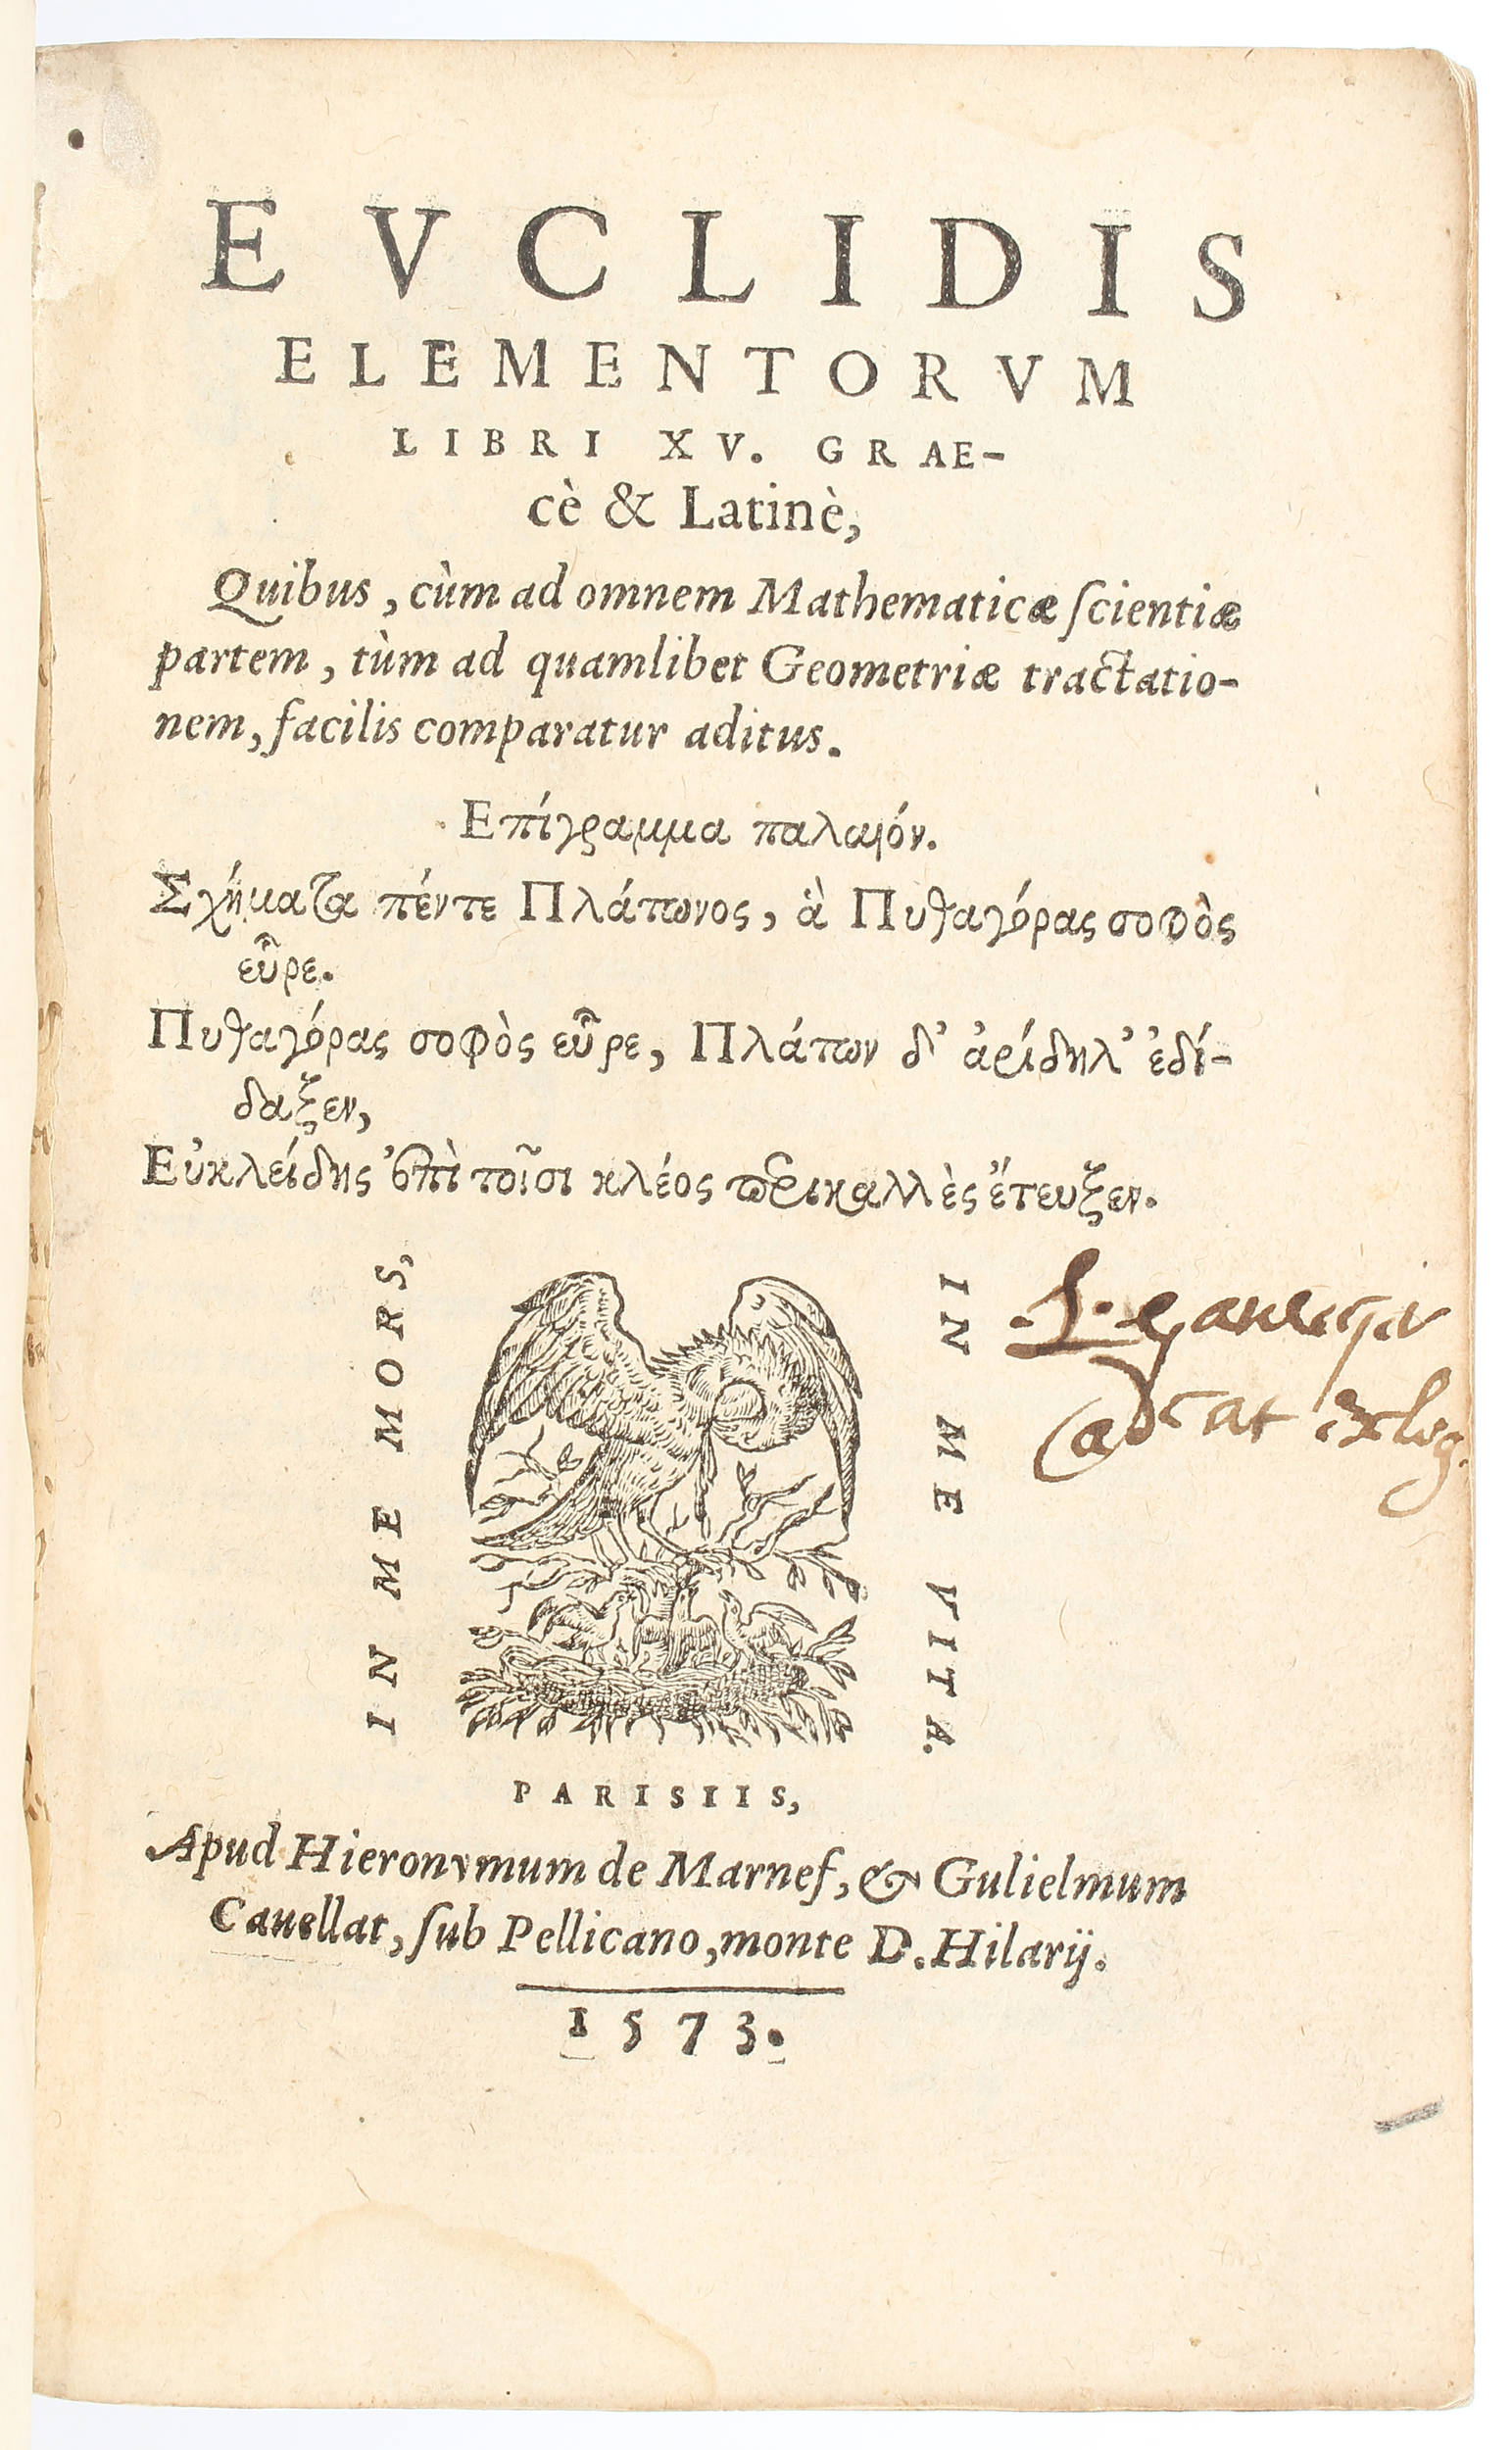 EVCLIDIS
ELEMENTORVM
LIBRI XV. GRAE-
cè & Latinè,
Quibus, cùm ad omnem Mathematicæ ſcientiæ
partem, tùm ad quamlibet Geometriæ tractatio-
nem, facilis comparatur aditus.
Επίγραμμα παλαιόν.
Σχήματα πέντε Πλάτωνος, ἃ Πυθαγόρας σοφὸς
εὗρε.
Πυθαγόρας σοφὸς εὗρε, Πλάτων δ' ἀρίδηλ' ἐδί-
δαξεν,
Εὐκλείδης ἐπὶ τοῖσι κλέος περικαλλὲς ἔτευξεν.
IN ME MORS,
IN ME VITA.
PARISIIS,
Apud Hieronymum de Marnef, & Gulielmum
Cauellat, ſub Pellicano, monte D. Hilarij.
1573.